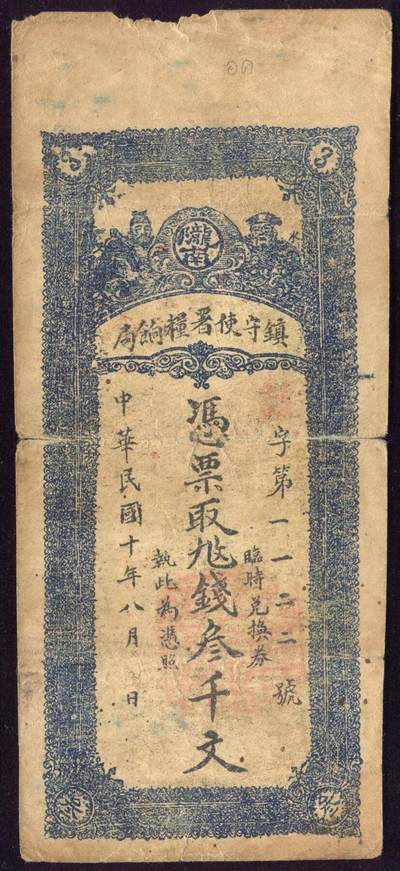 3
3
隴南
鎮守使署糧餉局
字第一一二二號
臨時兑換券
憑票取尨錢叁千文
執此為憑照
中華民國十年八月 日
叁
叁